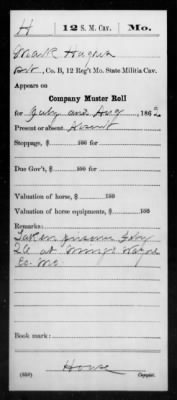 H | 12 S. M. Cav. | Mo.
Mark Hughes
Pvt, Co. B, 12 Reg't Mo. State Militia Cav.
Appears on
Company Muster Roll
for July and Aug, 1862
Present or absent Absent
Stoppage, $ 100 for
Due Gov't, $ 100 for
Valuation of horse, $ 100
Valuation of horse equipments, $ 100
Remarks:
Taken prisoner July
26 at Wayne
Co. Mo.
Book mark:
(359) Howse Copyist.